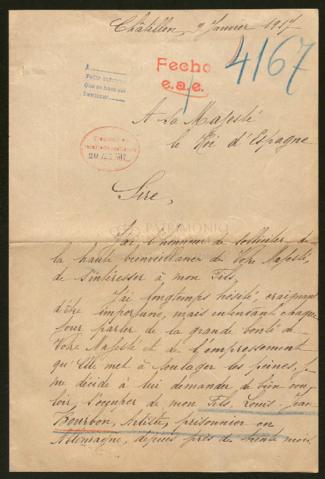 Châtillon, 9 Janvier 1917
4167
Fecho
e.a.e.
A Sa Majesté
le Roi d'Espagne
Sire,
PATRIMONIO
J'ai l'honneur de solliciter de
la haute bienveillance de Votre Majesté,
de s'intéresser à mon Fils.
J'ai longtemps hésité, craignant
d'être importune, mais entendant chaque
jour parler de la grande bonté de
Votre Majesté et de l'empressement
qu'Elle met à soulager les peines, je
me décide à lui demander de bien vou-
loir s'occuper de mon Fils, Louis Jean
Bourbon, Artiste, prisonnier en
Allemagne, depuis près de trente mois.